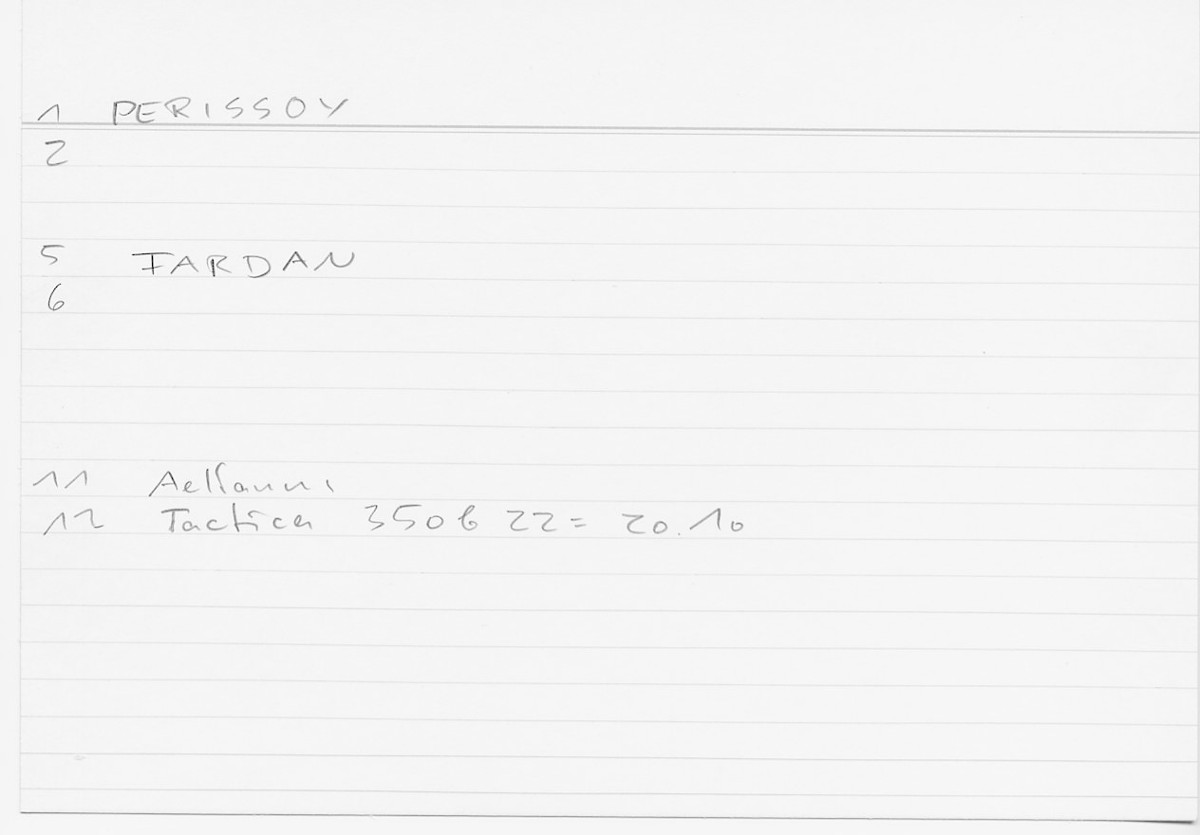 1 PERISSOY
2
5 IARDAN
6
11 Aelianus
12 Tactica 350b 22 = 20.10